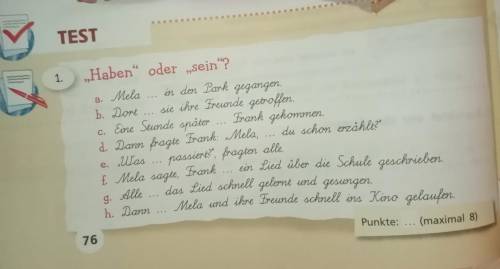 TEST
1. „Haben“ oder „sein“?
a. Mela ... in den Park gegangen.
b. Dort ... sie ihre Freunde getroffen.
c. Eine Stunde später ... Frank gekommen.
d. Dann fragte Frank: „Mela, ... du schon erzählt?“
e. „Was ... passiert?“, fragten alle.
f. Mela sagte, Frank ... ein Lied über die Schule geschrieben.
g. Alle ... das Lied schnell gelernt und gesungen.
h. Dann ... Mela und ihre Freunde schnell ins Kino gelaufen.
Punkte: ... (maximal 8)
76